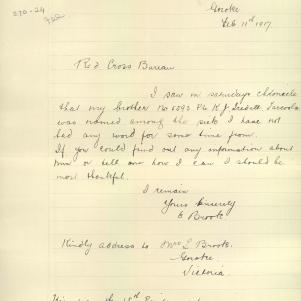 270-24
Goroke
Feb 11th 1917
Red Cross Bureau
I saw in saturdays chronicle
that my brother No 5092 Pte K J
was named among the sick I have not
had any word for some time from.
If you could find out any information about
him or tell me how I can I should be
most thankful.
I remain
Yours Sincerely
E Brook
Kindly address to Mrs E Brook.
Goroke
Victoria.